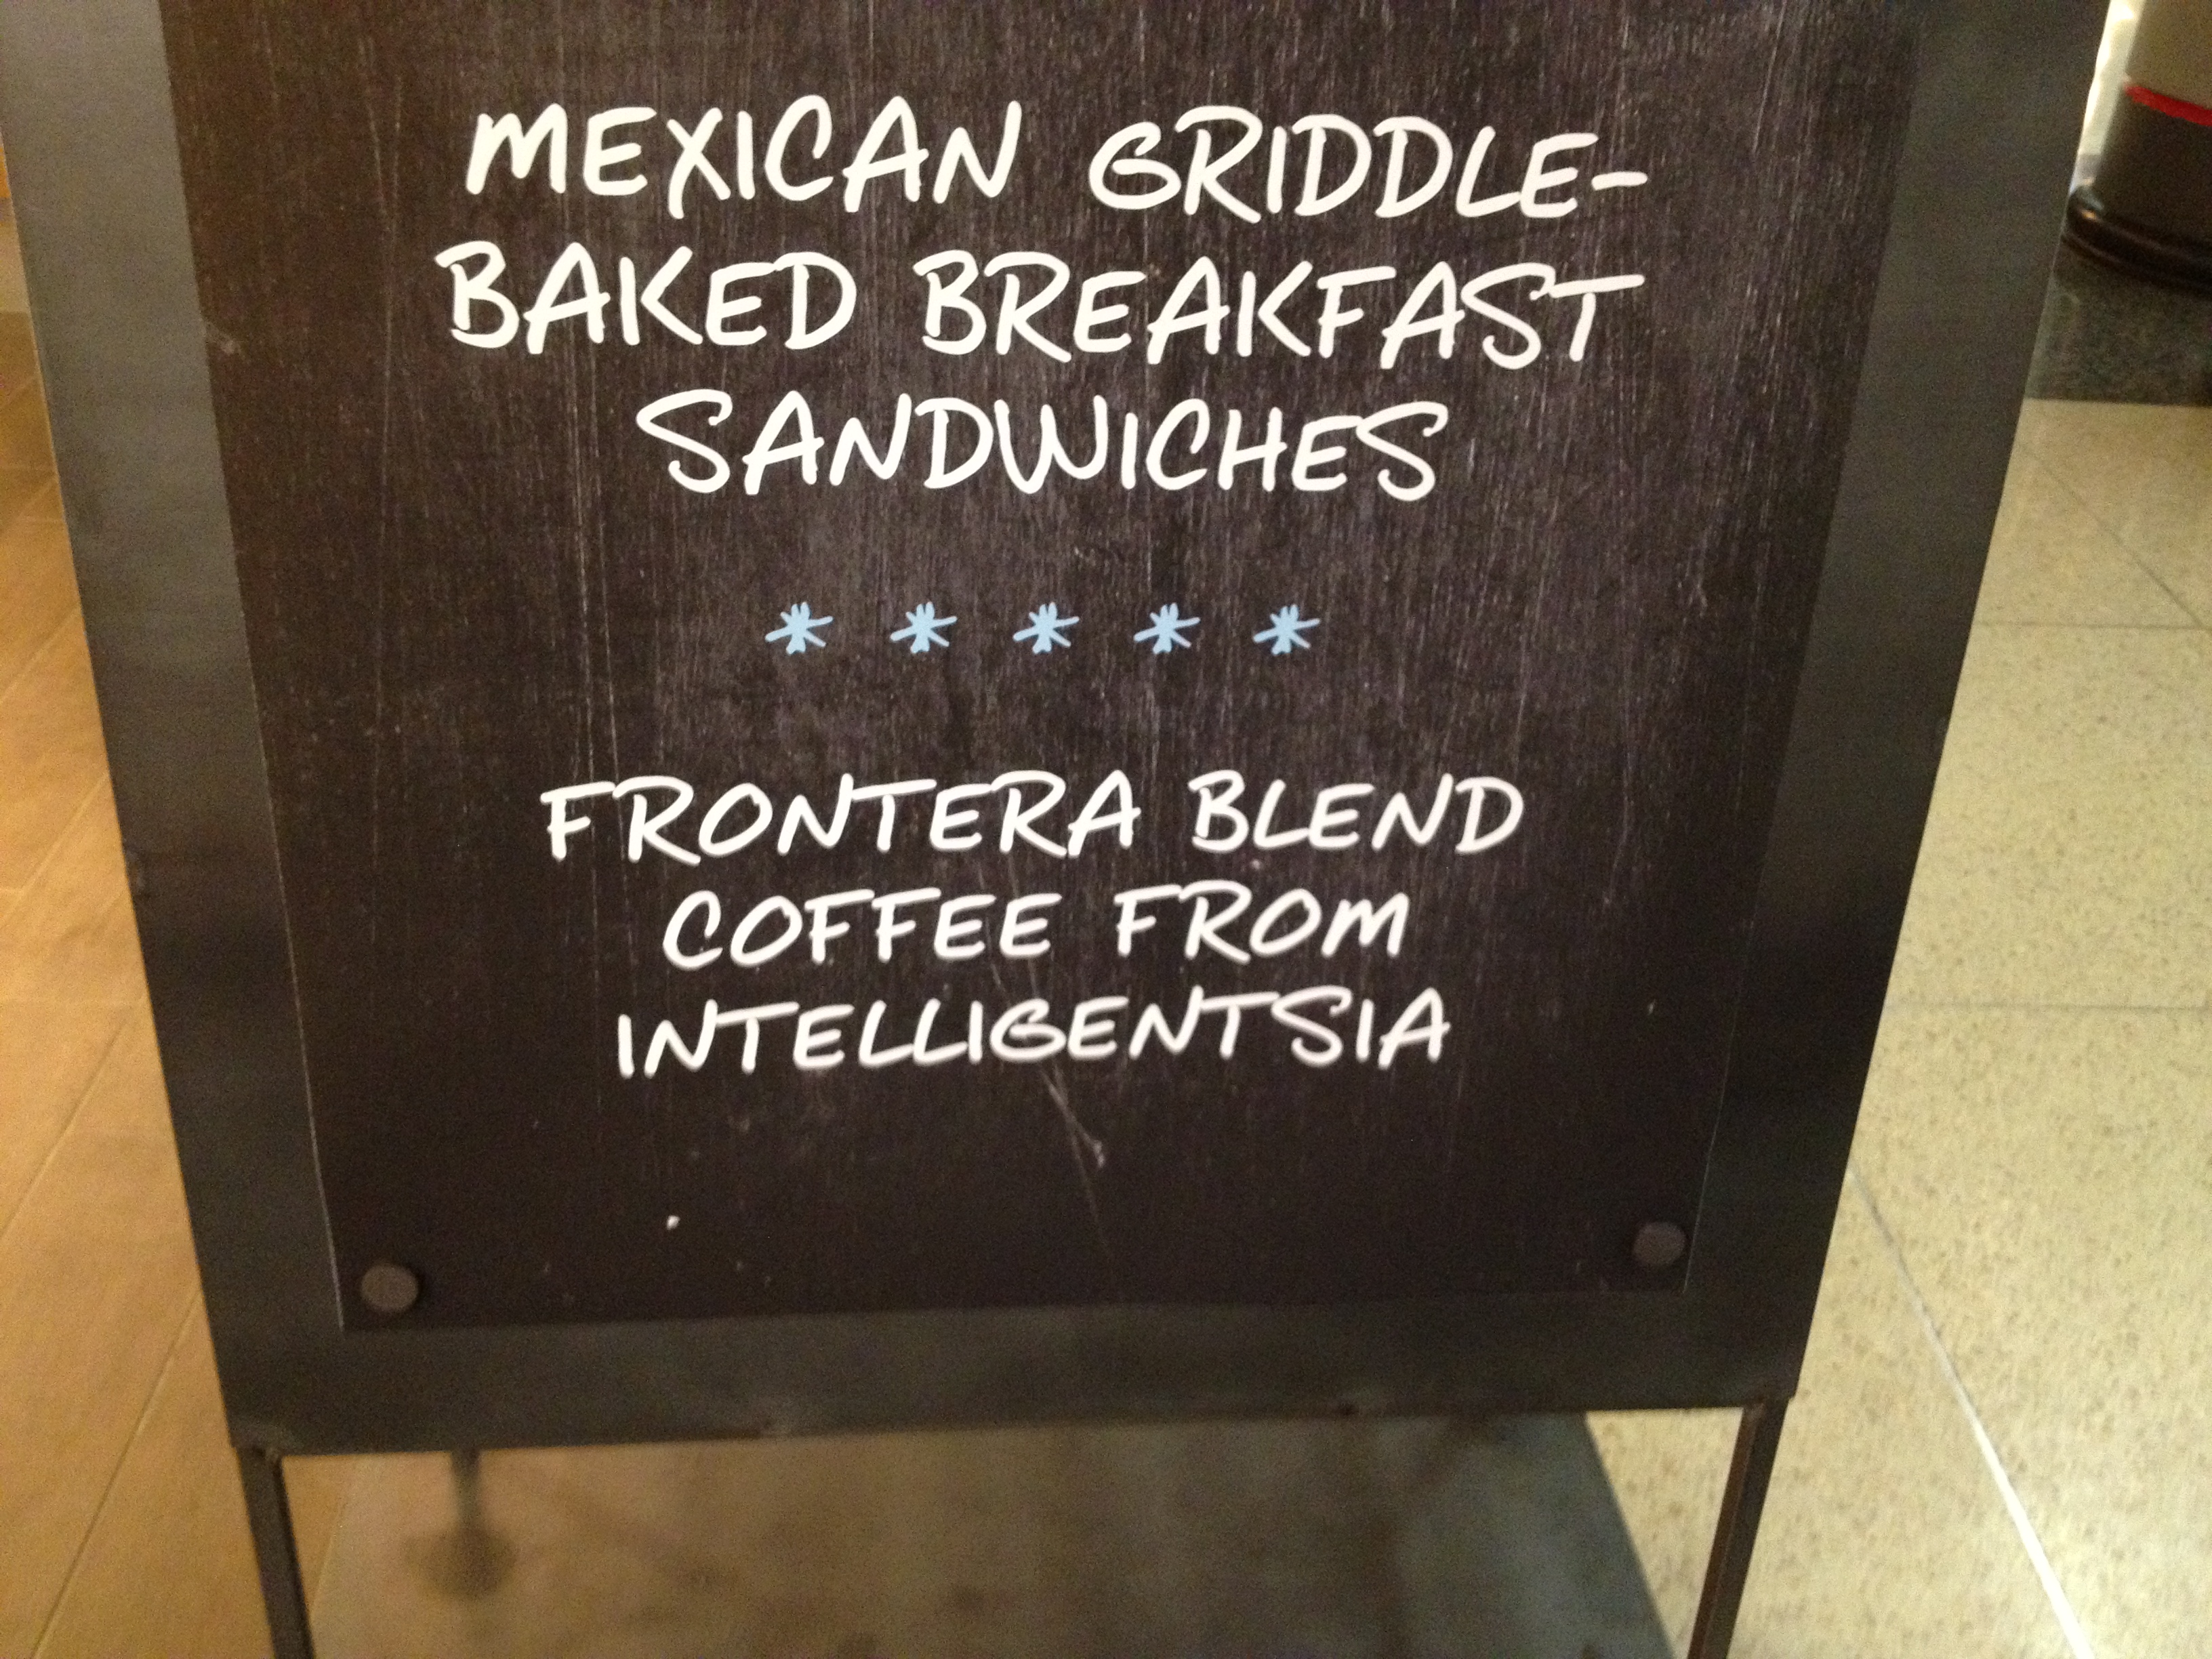 MEXICAN GRIDDLE-
BAKED BREAKFAST
SANDWICHES
* * * * *
FRONTERA BLEND
COFFEE FROM
INTELLIGENTSIA